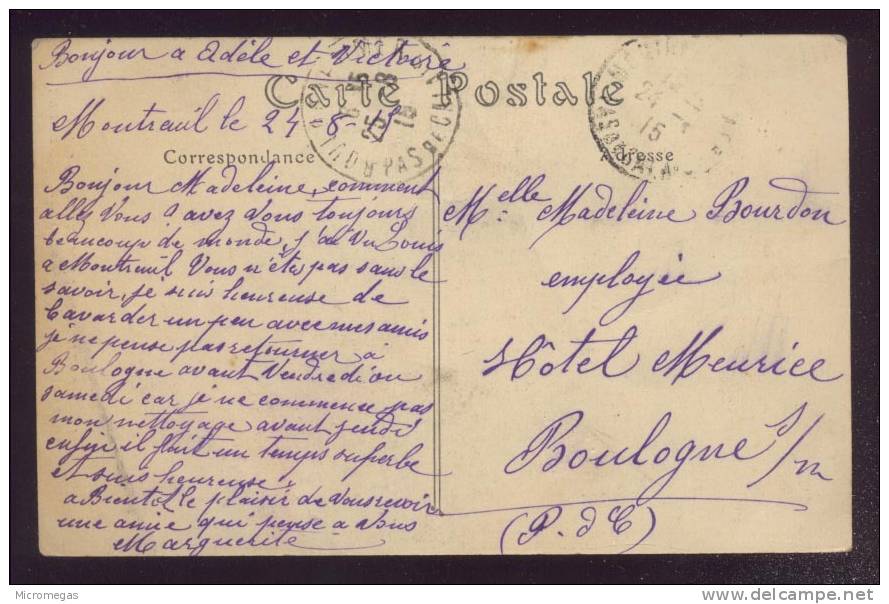 Bonjour a Adèle et Victoire
Carte Postale
Montreuil le 24-8-15
Correspondance
Adresse
Bonjour Madeleine, comment
allez Vous ? avez Vous toujours
beaucoup de monde, j'ai Vu Louis
a Montreuil Vous n'ête pas sans le
savoir, je suis heureuse de
bavarder un peu avec mes amis
je ne pense pas retourner à
Boulogne avant Vendredi ou
samedi car je ne commence pas
mon nettoyage avant jeudi
enfin il fait un temps superbe
et suis heureuse.
a Bientôt le plaisir de Vous revoir
une amie qui pense a Vous
Marguerite
Melle Madeleine Bourdon
employée
Hôtel Meurice
Boulogne s/m
(P. d C)
Micromegas
delcampe.net